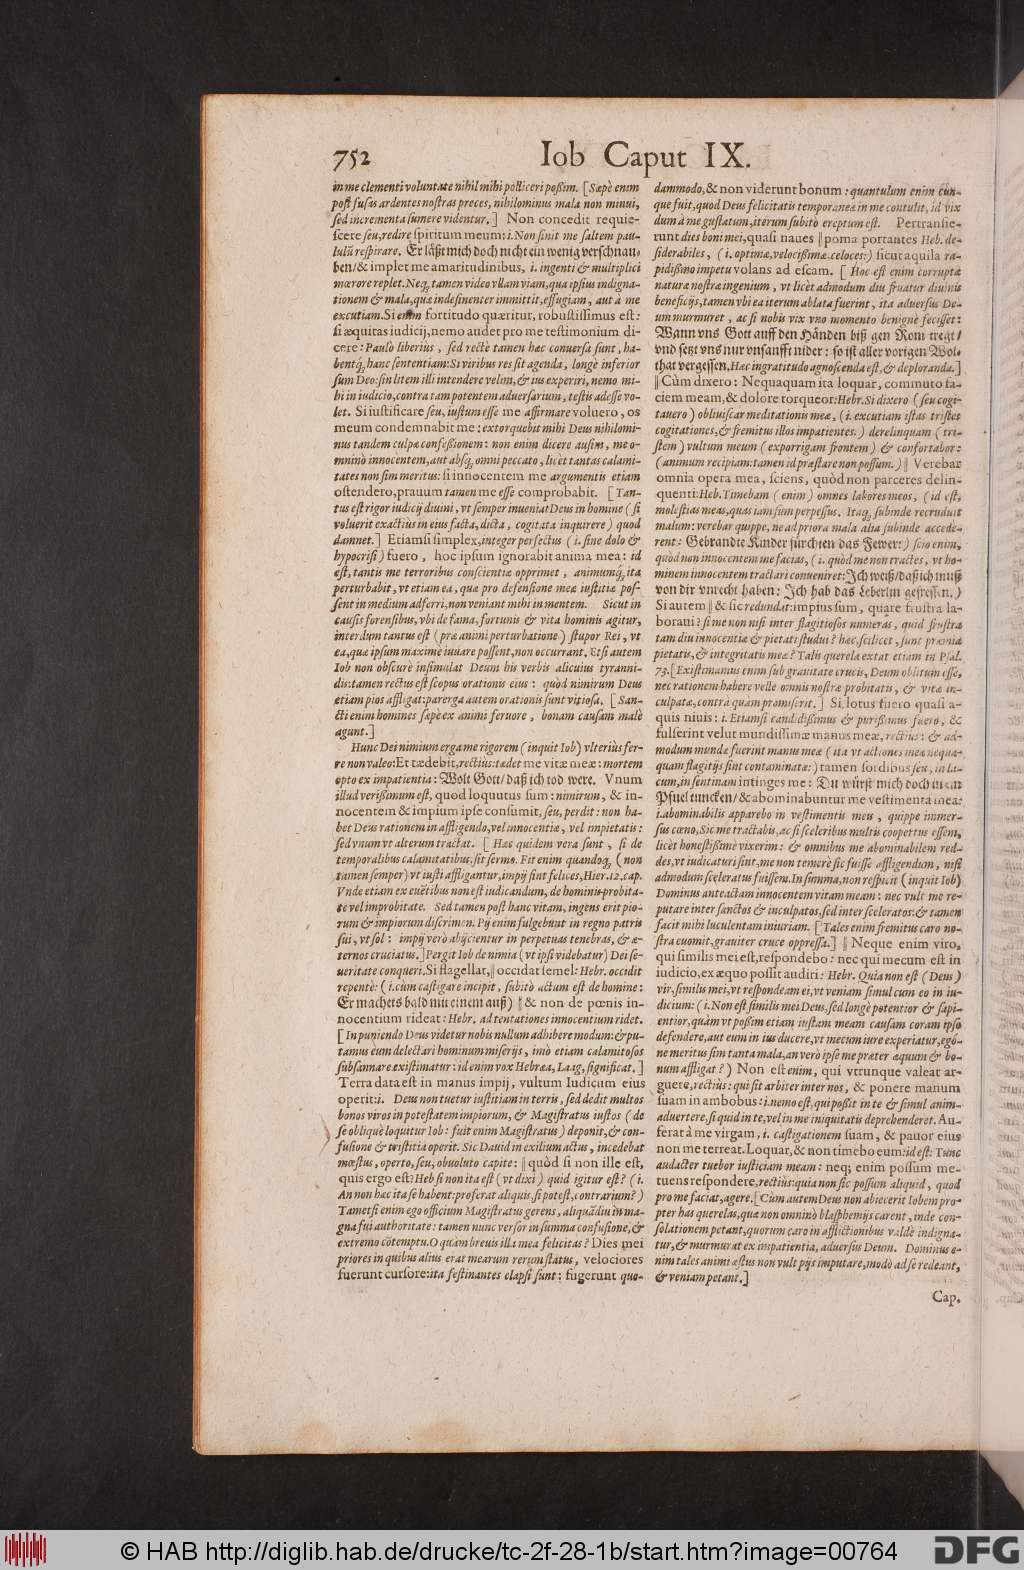 752
Iob Caput IX.
in me clementi voluntate nihil mihi polliceri poßim. [Sæpè enim
post fusas ardentes nostras preces, nihilominus mala non minui,
sed incrementa sumere videntur.] Non concedit requie-
scere seu, redire spiritum meum: i. Non sinit me saltem pau-
lulũ respirare. Er läßt mich doch nicht ein wenig verschnau-
ben/& implet me amaritudinibus, i. ingenti & multiplici
mœrore replet. Neq; tamen video vllam viam, qua ipsius indigna-
tionem & mala, quæ indesinenter immittit, effugiam, aut à me
excutiam. Si enim fortitudo quæritur, robustissimus est:
si æquitas iudicij, nemo audet pro me testimonium di-
cere: Paulò liberius, sed rectè tamen hæc conuersa sunt, ha-
bentq́; hanc sententiam: Si viribus res sit agenda, longè inferior
sum Deo: sin litem illi intendere velim, & ius experiri, nemo mi-
hi in iudicio, contra tam potentem aduersarium, testis adesse vo-
let. Si iustificare seu, iustum esse me affirmare voluero, os
meum condemnabit me: extorquebit mihi Deus nihilomi-
nus tandem culpæ confeßionem: non enim dicere ausim, me o-
mninò innocentem, aut absq; omni peccato, licèt tantas calami-
tates non sim meritus: si innocentem me argumentis etiam
ostendero, prauum tamen me esse comprobabit. [Tan-
tus est rigor iudicij diuini, vt semper inueniat Deus in homine (si
voluerit exactius in eius facta, dicta, cogitata inquirere) quod
damnet.] Etiamsi simplex, integer perfectus (i. sine dolo &
hypocrisi) fuero, hoc ipsum ignorabit anima mea: id
est, tantis me terroribus conscientiæ opprimet, animumq́; ita
perturbabit, vt etiam ea, quæ pro defensione meæ iustitiæ pos-
sent in medium adferri, non veniant mihi in mentem. Sicut in
causis forensibus, vbi de fama, fortunis & vita hominis agitur,
interdum tantus est (præ animi perturbatione) stupor Rei, vt
ea, quæ ipsum maximè iuuare possent, non occurrant. Etsi autem
Iob non obscurè insimulat Deum his verbis alicuius tyranni-
dis: tamen rectus est scopus orationis eius: quòd nimirum Deus
etiam pios affligat: parerga autem orationis sunt vitiosa. [San-
cti enim homines sæpè ex animi feruore, bonam causam malè
agunt.]
Hunc Dei nimium erga me rigorem (inquit Iob) vlteriùs fer-
re non valeo: Et tædebit, rectius: tædet me vitæ meæ: mortem
opto ex impatientia: Wolt Gott/ daß ich tod were. Vnum
illud verißimum est, quod loquutus sum: nimirum, & in-
nocentem & impium ipse consumit, seu, perdit: non ha-
bet Deus rationem in affligendo, vel innocentiæ, vel impietatis:
sed vnum vt alterum tractat. [Hæc quidem vera sunt, si de
temporalibus calamitatibus, sit sermo. Fit enim quandoq; (non
tamen semper) vt iusti affligantur, impij sint felices, Hier. 12. cap.
Vnde etiam ex euẽtibus non est iudicandum, de hominis probita-
te vel improbitate. Sed tamen post hanc vitam, ingens erit pio-
rum & impiorum discrimen. Pij enim fulgebunt in regno patris
sui, vt sol: impij verò abijcientur in perpetuas tenebras, & æ-
ternos cruciatus.] Pergit Iob de nimia (vt ipsi videbatur) Dei se-
ueritate conqueri. Si flagellat, ‖ occidat semel: Hebr. occidit
repentè: (i. cùm castigare incipit, subitò actum est de homine:
Er machets bald mit einem auß) ‖ & non de pœnis in-
nocentium rideat: Hebr. ad tentationes innocentium ridet.
[In puniendo Deus videtur nobis nullum adhibere modum: & pu-
tamus eum delectari hominum miserijs, imò etiam calamitosos
subsannare existimatur: id enim vox Hebræa, Laag, significat.]
Terra data est in manus impij, vultum Iudicum eius
operit: i. Deus non tuetur iustitiam in terris, sed dedit multos
bonos viros in potestatem impiorum, & Magistratus iustos (de
se obliquè loquitur Iob: fuit enim Magistratus) deponit, & con-
fusione & tristitia operit. Sic Dauid in exilium actus, incedebat
mœstus, operto, seu, obuoluto capite: ‖ quòd si non ille est,
quis ergo est? Heb. si non ita est (vt dixi) quid igitur est? (i.
An non hæc ita se habent: proferat aliquis, si potest, contrarium?)
Tametsi enim ego officium Magistratus gerens, aliquãdiu in ma-
gna fui authoritate: tamen nunc versor in summa confusione, &
extremo cõtemptu. O quàm breuis illa mea felicitas? Dies mei
priores in quibus alius erat mearum rerum status, velociores
fuerunt cursore: ita festinantes elapsi sunt: fugerunt quo-
dammodo, & non viderunt bonum: quantulum enim cũn-
que fuit, quod Deus felicitatis temporaneæ in me contulit, id vix
dum à me gustatum, iterum subitò ereptum est. Pertransie-
runt dies boni mei, quasi naues ‖ poma portantes Heb. de-
siderabiles, (i. optimæ, velocißimæ, celoces:) sicut aquila ra-
pidißimo impetu volans ad escam. [Hoc est enim corruptæ
naturæ nostræ ingenium, vt licèt admodum diu fruatur diuinis
beneficijs, tamen vbi ea iterum ablata fuerint, ita aduersus De-
um murmuret, ac si nobis vix vno momento benignè fecisset:
Wann vns Gott auff den Händen biß gen Rom tregt/
vnd setzt vns nur vnsanfft nider: so ist aller vorigen Wol-
that vergessen. Hæc ingratitudo agnoscenda est, & deploranda.]
‖ Cùm dixero: Nequaquam ita loquar, commuto fa-
ciem meam, & dolore torqueor: Hebr. Si dixero (seu cogi-
tauero) obliuiscar meditationis meæ, (i. excutiam istas tristes
cogitationes, & fremitus illos impatientes.) derelinquam (tri-
stem) vultum meum (exporrigam frontem) & confortabor:
(animum recipiam: tamen id præstare non possum.) ‖ Verebar
omnia opera mea, sciens, quòd non parceres delin-
quenti: Heb. Timebam (enim) omnes labores meos, (id est,
molestias meas, quas iam sum perpessus. Itaq; subinde recruduit
malum: verebar quippe, ne ad priora mala alia subinde accede-
rent: Gebrandte Kinder fürchten das Fewer:) scio enim,
quòd non innocentem me facias, (i. quòd me non tractes, vt ho-
minem innocentem tractari conueniret: Ich weiß/ daß ich muß
von dir vnrecht haben: Ich hab das Leberlin gefressen.)
Si autem ‖ & sic redundat: impius sum, quare frustra la-
boraui? si me non nisi inter flagitiosos numeras, quid frustra
tam diu innocentiæ & pietati studui? hæc, scilicet, sunt præmia
pietatis, & integritatis meæ? Talis querela extat etiam in Psal.
73. [Existimamus enim sub grauitate crucis, Deum oblitum esse,
nec rationem habere velle omnis nostræ probitatis, & vitæ in-
culpatæ, contrà quàm promiserit.] Si, lotus fuero quasi a-
quis niuis: i. Etiamsi candidißimus & purißimus fuero, &
fulserint velut mundissimæ manus meæ, rectius: & ad-
modum mundæ fuerint manus meæ (ita vt actiones meæ nequa-
quam flagitijs sint contaminatæ:) tamen sordibus seu, in la-
cum, in sentinam intinges me: Du würst mich doch in ein
Pfuel tuncken/ & abominabuntur me vestimenta mea:
i. abominabilis apparebo in vestimentis meis, quippe immer-
sus cœno, Sic me tractabis, ac si sceleribus multis coopertus essem,
licèt honestißimè vixerim: & omnibus me abominabilem red-
des, vt iudicaturi sint, me non temerè sic fuisse affligendum, nisi
admodum sceleratus fuissem. In summa, non respicit (inquit Iob)
Dominus anteactam innocentem vitam meam: nec vult me re-
putare inter sanctos & inculpatos, sed inter sceleratos: & tamen
facit mihi luculentam iniuriam. [Tales enim fremitus caro no-
stra euomit, grauiter cruce oppressa.] ‖ Neque enim viro,
qui similis mei est, respondebo: nec qui mecum est in
iudicio, ex æquo possit audiri: Hebr. Quia non est (Deus)
vir, similis mei, vt respondeam ei, vt veniam simul cum eo in iu-
dicium: (i. Non est similis mei Deus, sed longè potentior & sapi-
entior, quàm vt poßim etiam iustam meam causam coram ipso
defendere, aut eum in ius ducere, vt mecum iure experiatur, egó-
ne meritus sim tanta mala, an verò ipse me præter æquum & bo-
num affligat?) Non est enim, qui vtrunque valeat ar-
guere, rectiùs: qui sit arbiter inter nos, & ponere manum
suam in ambobus: i. nemo est, qui poßit in te & simul anim-
aduertere, si quid in te, vel in me iniquitatis deprehenderet. Au-
ferat à me virgam, i. castigationem suam, & pauor eius
non me terreat. Loquar, & non timebo eum: id est: Tunc
audacter tuebor iusticiam meam: neq; enim possum me-
tuens respondere, rectiùs: quia non sic possum aliquid, quod
pro me faciat, agere. [Cùm autem Deus non abiecerit Iobem pro-
pter has querelas, quæ non omninò blasphemijs carent, inde con-
solationem petant, quorum caro in afflictionibus valdè indigna-
tur, & murmurat ex impatientia, aduersus Deum. Dominus e-
nim tales animi æstus non vult pijs imputare, modò ad se redeant,
& veniam petant.]
Cap.
© HAB http://diglib.hab.de/drucke/tc-2f-28-1b/start.htm?image=00764
DFG